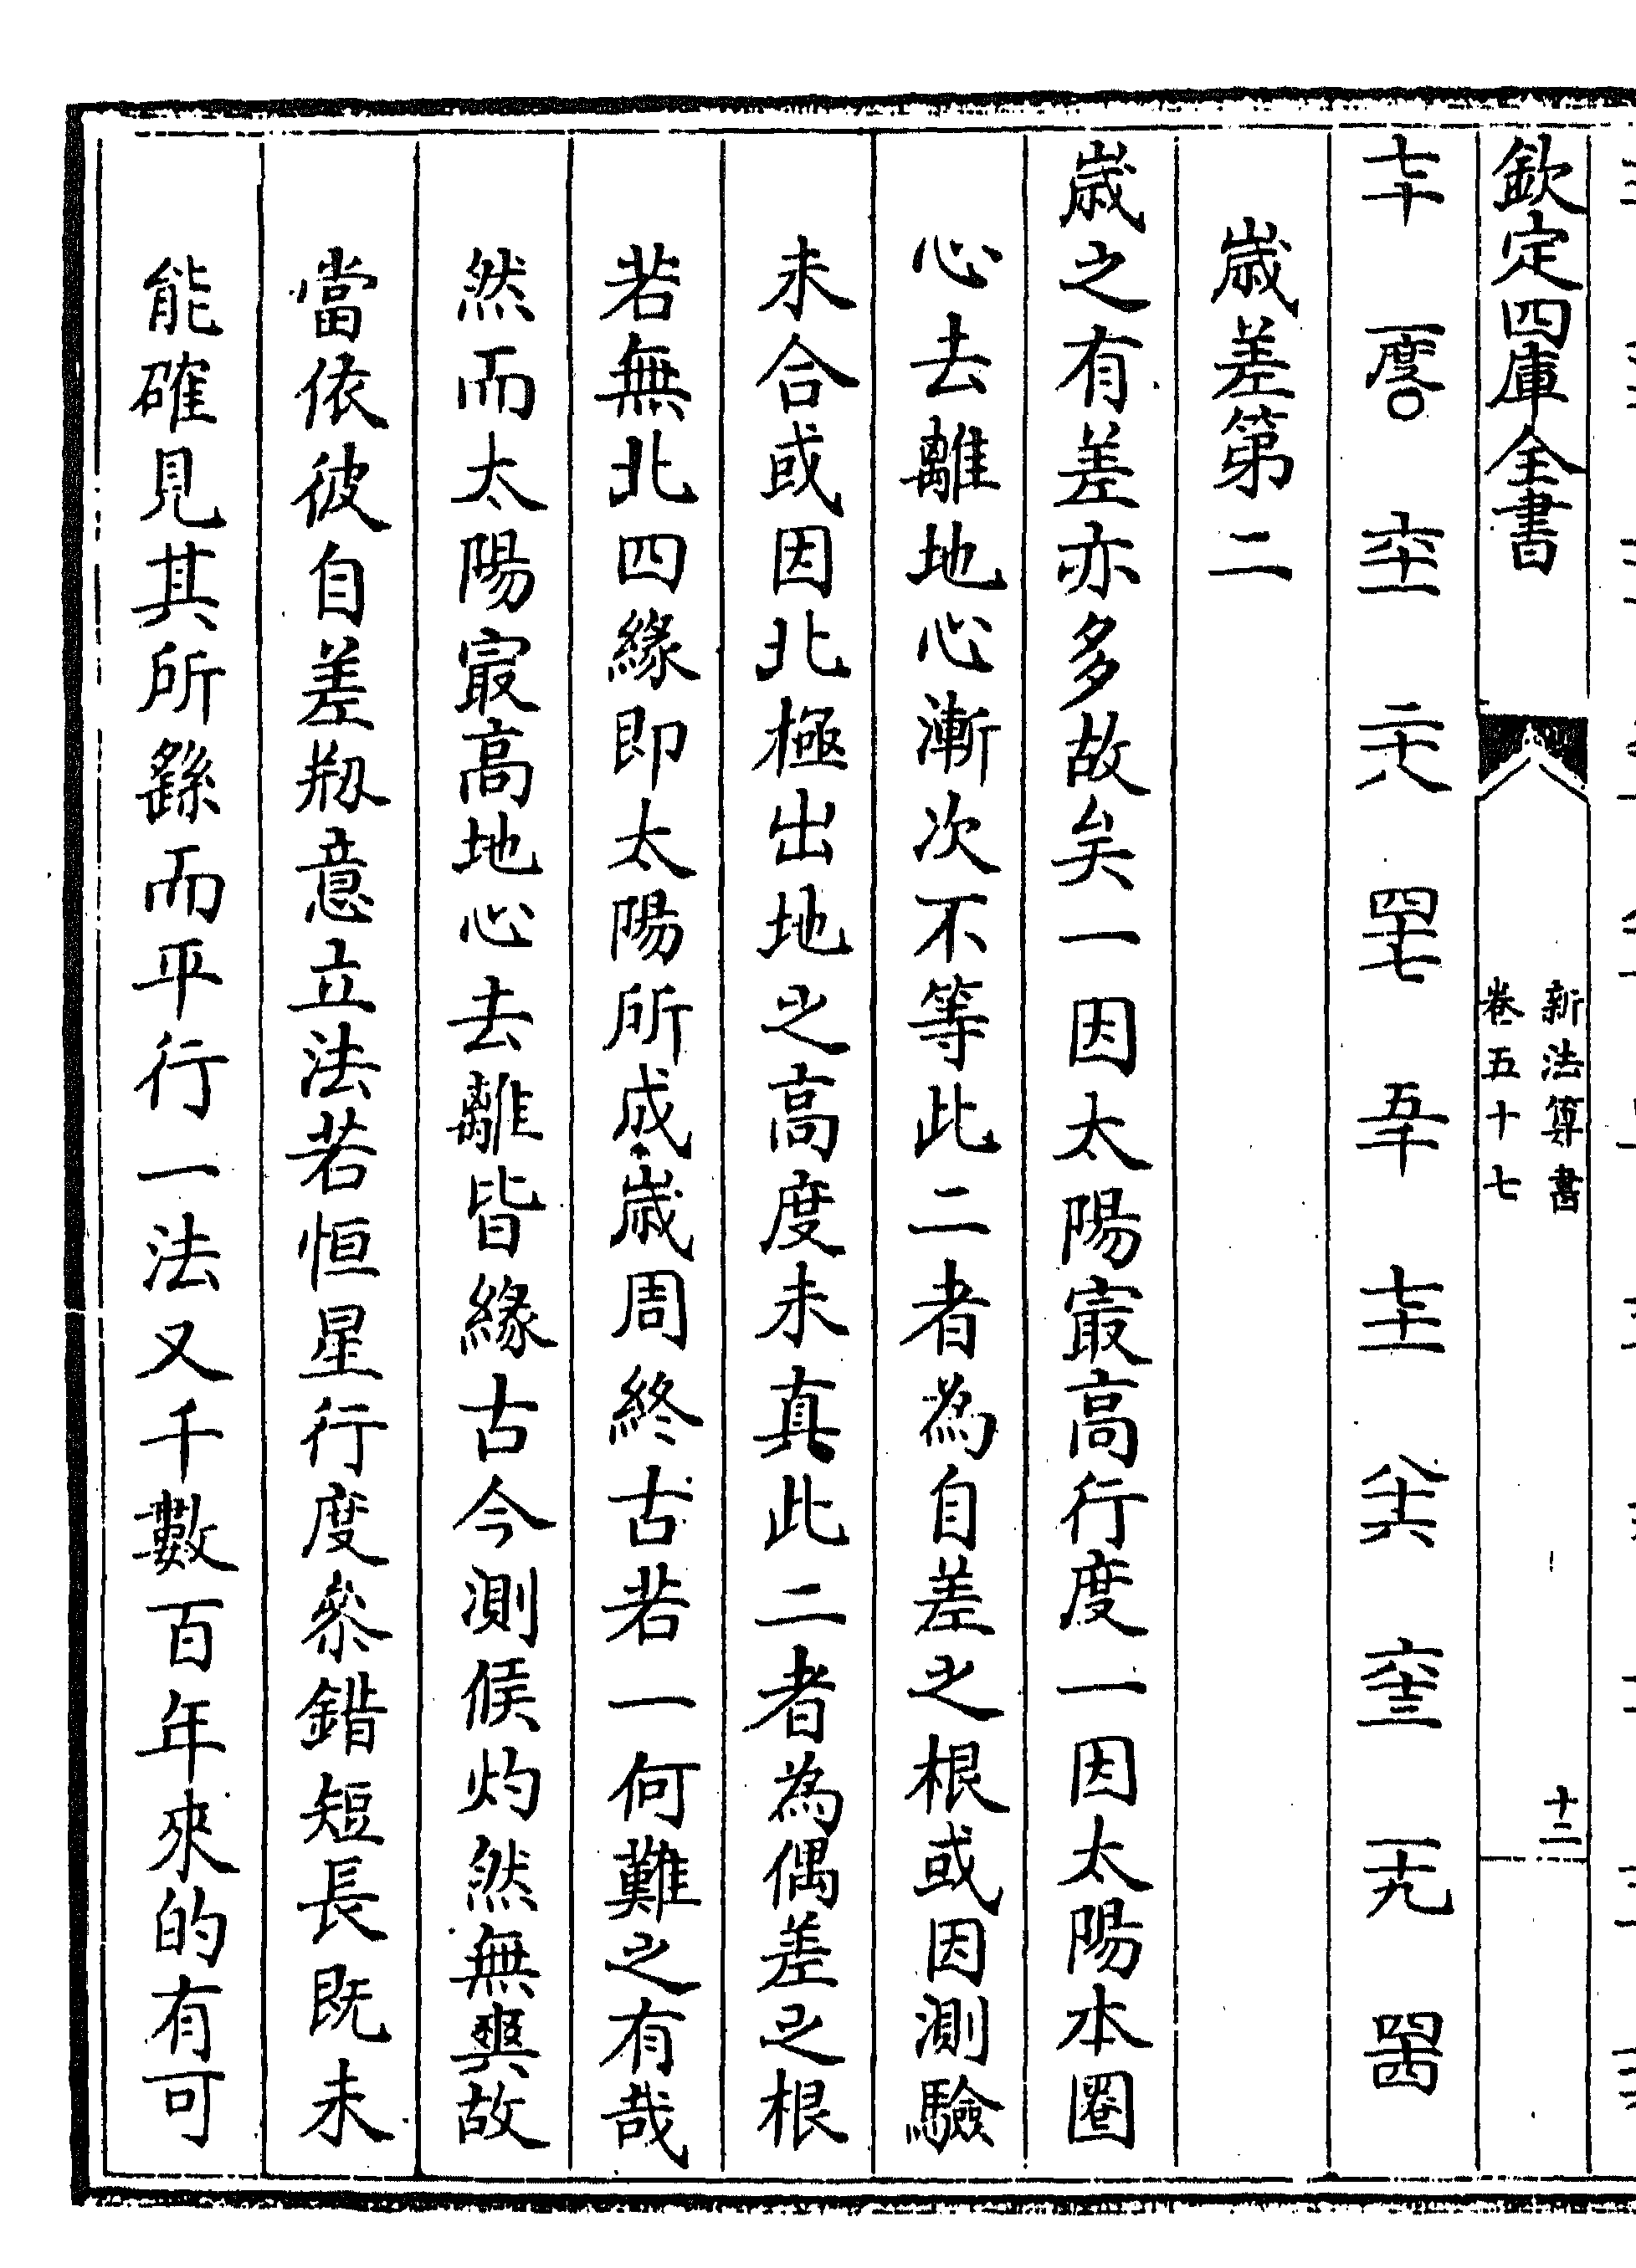 欽定四庫全書
新法算書
卷五十七
十二
七十 一度〇 六十一 二十八 四十七 五十 七十一 八十六 六十三 一十九 四十四
歲差第二
歲之有差亦多故矣一因太陽㝡高行度一因太陽本圈
心去離地心漸次不等此二者為自差之根或因測驗
未合或因北極出地之高度未真此二者為偶差之根
若無此四緣即太陽所成歲周終古若一何難之有哉
然而太陽㝡高地心去離皆緣古今測候灼然無爽故
當依彼自差剏意立法若恒星行度叅錯短長既未
能確見其所繇而平行一法又千數百年來的有可